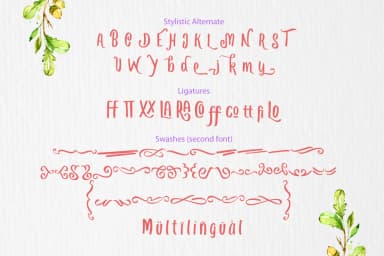 Stylistic Alternate
A B C D E H J K L M N R S T
U W Y b d e j k m y
Ligatures
ff TT XX LA RA CO ff co tt fi Lo
Swashes (second font)
Mültilingüàl